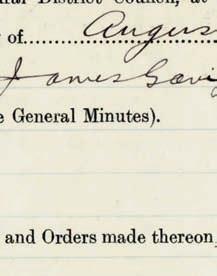 ral District Council, at
y of.......... Augus
James Gavi
e General Minutes).
and Orders made thereon,